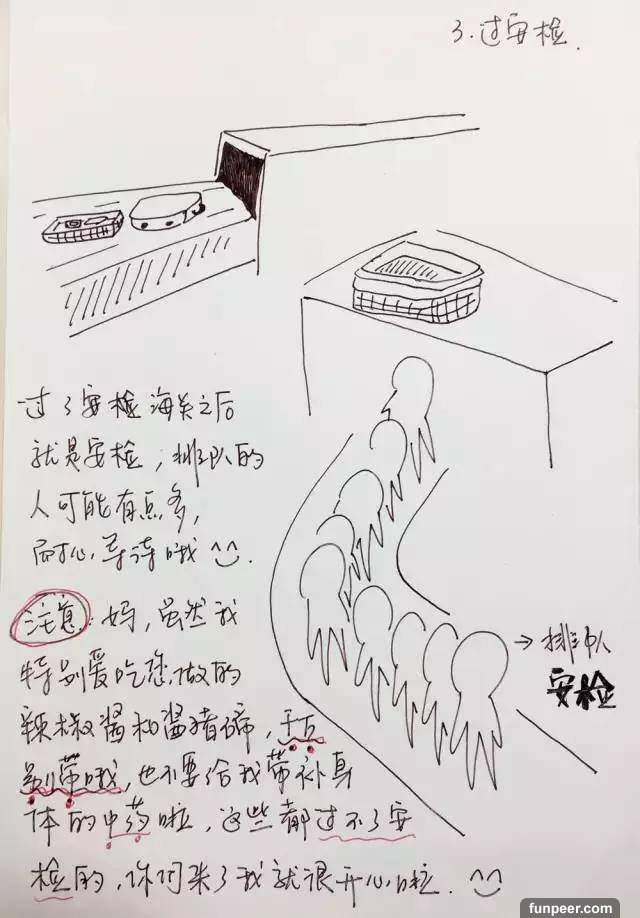 3.过安检.
过了安检海关之后
就是安检，排队的
人可能有点多，
耐心等待哦^^.
注意：妈，虽然我
特别爱吃您做的
辣椒酱和酱猪蹄，千万
别带哦，也不要给我带补身
体的中药啦，这些都过不了安
检的，你们来了我就很开心啦.^^
→排队
安检
funpeer.com